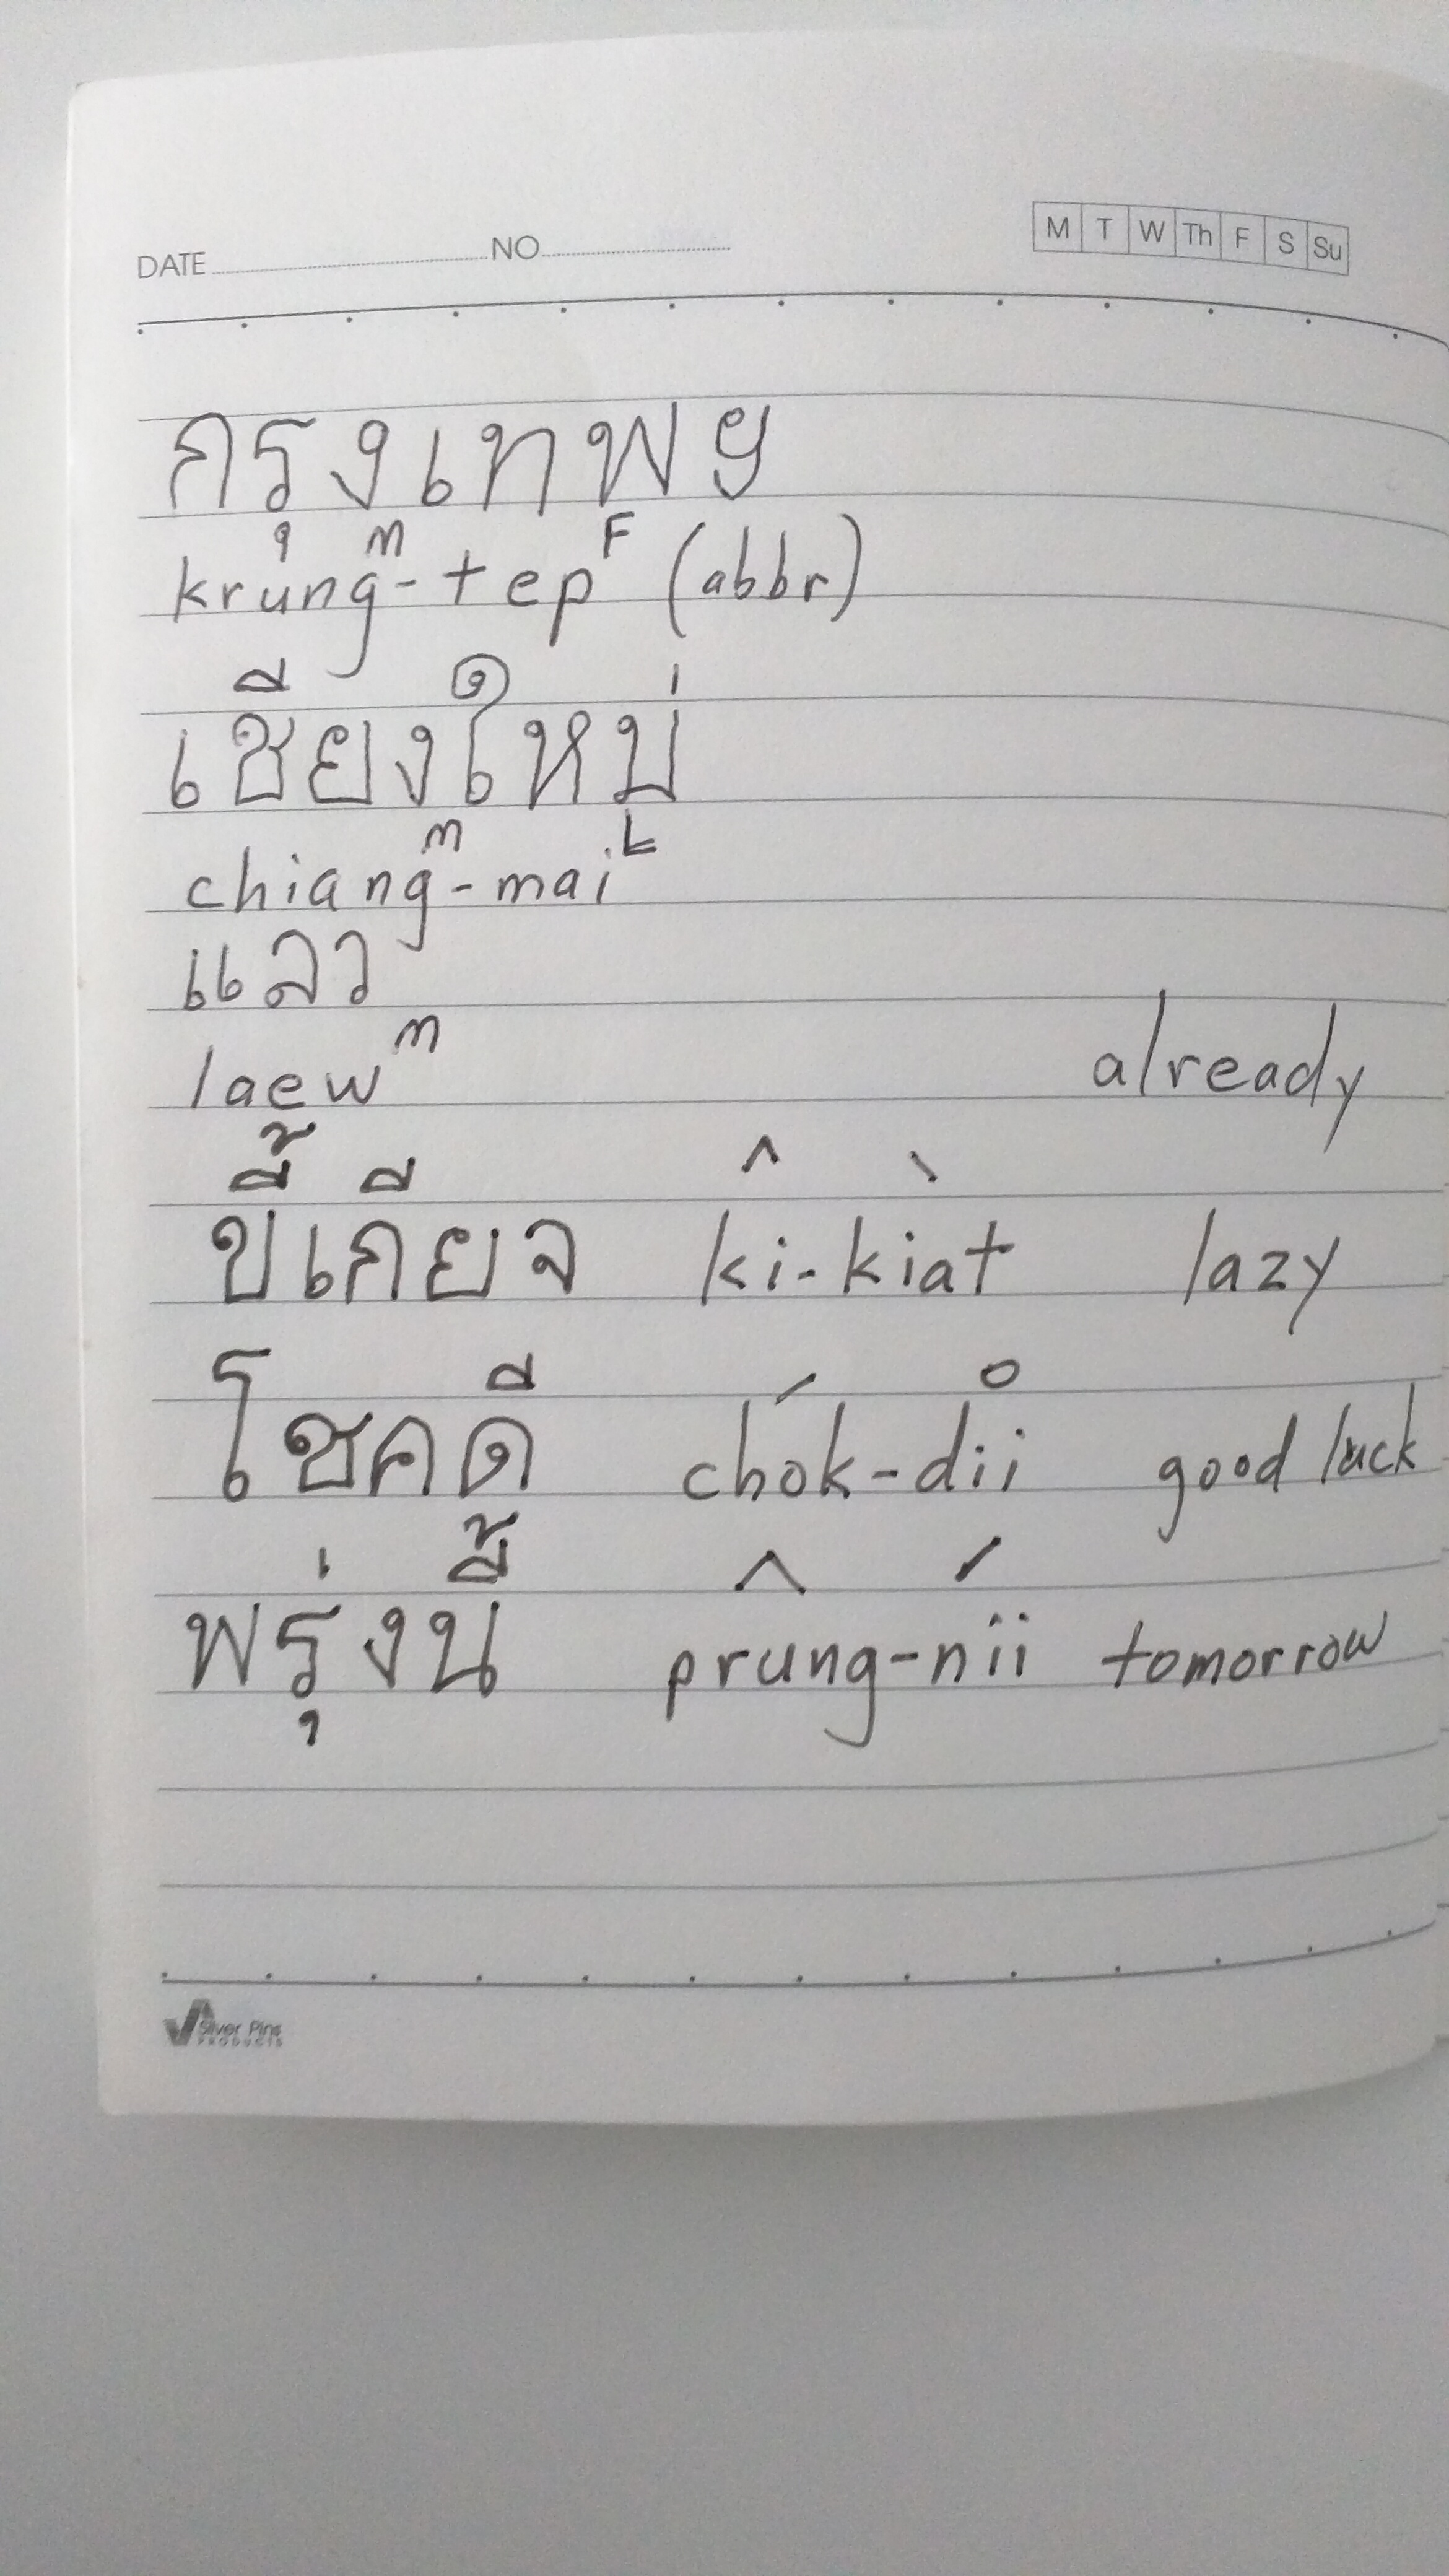 DATE NO M T W Th F S Su
กรุงเทพฯ
krung-tep (abbr) M F
เชียงใหม่
chiang-mai M L
แลว
laew M already
ขี้เกียจ ki-kiat lazy
โชคดี chok-dii good luck
พรุ่งนี้ prung-nii tomorrow
Silver Pins
PRODUCTS